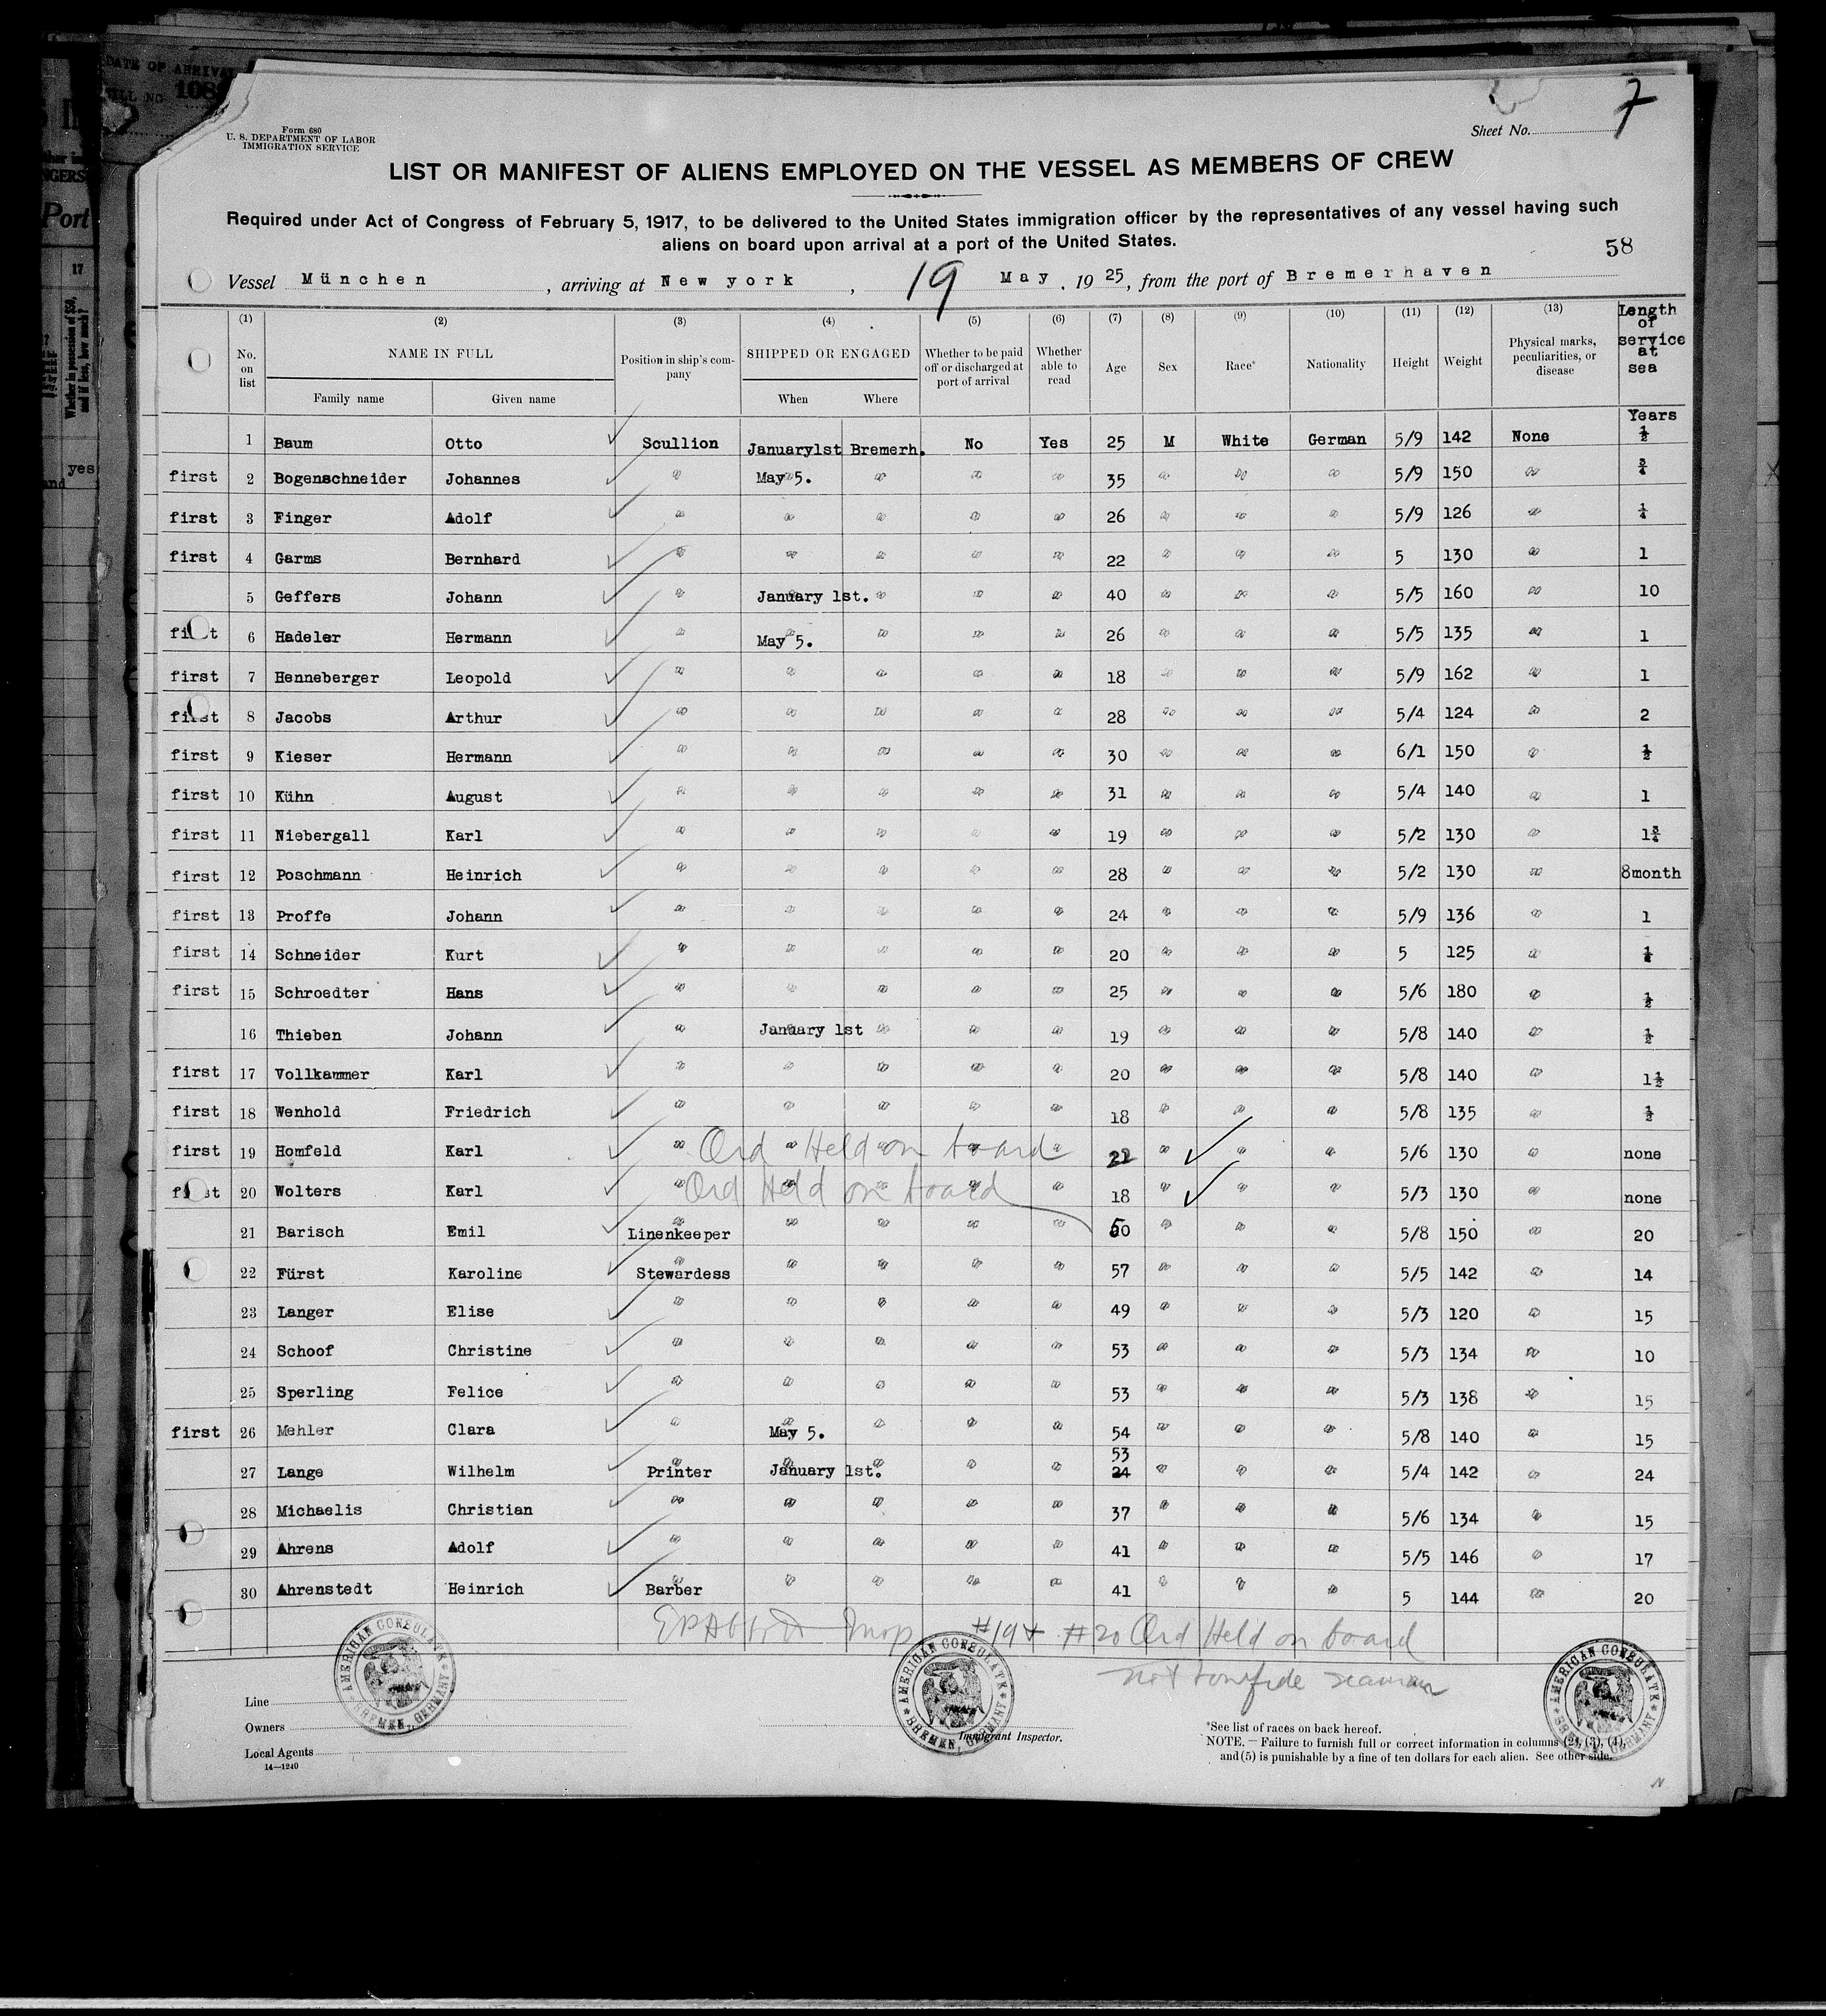 DATE OF ARRIVAL
108
Port
17
Whether in possession of $50,
and if less, how much?
yes
Form 680
U. S. DEPARTMENT OF LABOR
IMMIGRATION SERVICE
Sheet No. 7
LIST OR MANIFEST OF ALIENS EMPLOYED ON THE VESSEL AS MEMBERS OF CREW
Required under Act of Congress of February 5, 1917, to be delivered to the United States immigration officer by the representatives of any vessel having such
aliens on board upon arrival at a port of the United States.
58
Vessel München , arriving at New york , 19 May , 19 25, from the port of Bremerhaven
(1) (2) (3) (4) (5) (6) (7) (8) (9) (10) (11) (12) (13) Length of service at sea
No. on list NAME IN FULL Position in ship's company SHIPPED OR ENGAGED Whether to be paid off or discharged at port of arrival Whether able to read Age Sex Race* Nationality Height Weight Physical marks, peculiarities, or disease
Family name Given name When Where Years
1 Baum Otto Scullion January1st Bremerh. No Yes 25 M White German 5/9 142 None ½
first 2 Bogenschneider Johannes " May 5. " " " 35 " " " 5/9 150 " ¾
first 3 Finger Adolf " " " " " 26 " " " 5/9 126 " ¼
first 4 Garms Bernhard " " " " " 22 " " " 5 130 " 1
5 Geffers Johann " January 1st. " " " 40 " " " 5/5 160 " 10
first 6 Hadeler Hermann " May 5. " " " 26 " " " 5/5 135 " 1
first 7 Henneberger Leopold " " " " " 18 " " " 5/9 162 " 1
first 8 Jacobs Arthur " " " " " 28 " " " 5/4 124 " 2
first 9 Kieser Hermann " " " " " 30 " " " 6/1 150 " ½
first 10 Kühn August " " " " " 31 " " " 5/4 140 " 1
first 11 Niebergall Karl " " " " " 19 " " " 5/2 130 " 1¾
first 12 Poschmann Heinrich " " " " " 28 " " " 5/2 130 " 8month
first 13 Proffe Johann " " " " " 24 " " " 5/9 136 " 1
first 14 Schneider Kurt " " " " " 20 " " " 5 125 "
first 15 Schroedter Hans " " " " " 25 " " " 5/6 180 " ½
16 Thieben Johann " January 1st " " " 19 " " " 5/8 140 " ½
first 17 Vollkammer Karl " " " " " 20 " " " 5/8 140 " 1½
first 18 Wenhold Friedrich " " " " " 18 " " " 5/8 135 " ½
first 19 Homfeld Karl " Ord Held on board 22 " " " 5/6 130 " none
first 20 Wolters Karl " Ord Held on board 18 " " " 5/3 130 " none
21 Barisch Emil Linenkeeper " " " " 50 " " " 5/8 150 " 20
22 Fürst Karoline Stewardess " " " " 57 " " " 5/5 142 " 14
23 Langer Elise " " " " " 49 " " " 5/3 120 " 15
24 Schoof Christine " " " " " 53 " " " 5/3 134 " 10
25 Sperling Felice " " " " " 53 " " " 5/3 138 " 15
first 26 Mehler Clara " May 5. " " " 54 " " " 5/8 140 " 15
27 Lange Wilhelm Printer January 1st. " " " 53 24 " " " 5/4 142 " 24
28 Michaelis Christian " " " " " 37 " " " 5/6 134 " 15
29 Ahrens Adolf " " " " " 41 " " " 5/5 146 " 17
30 Ahrenstedt Heinrich Barber " " " " 41 " " " 5 144 " 20
#19 + #20 Ord Held on board
not bonafide seaman
AMERICAN CONSULATE BREMEN, GERMANY
AMERICAN CONSULATE BREMEN, GERMANY
AMERICAN CONSULATE BREMEN, GERMANY
Line
Owners
Local Agents
14—1240
Immigrant Inspector.
*See list of races on back hereof.
NOTE.—Failure to furnish full or correct information in columns (2), (3), (4),
and (5) is punishable by a fine of ten dollars for each alien. See other side.